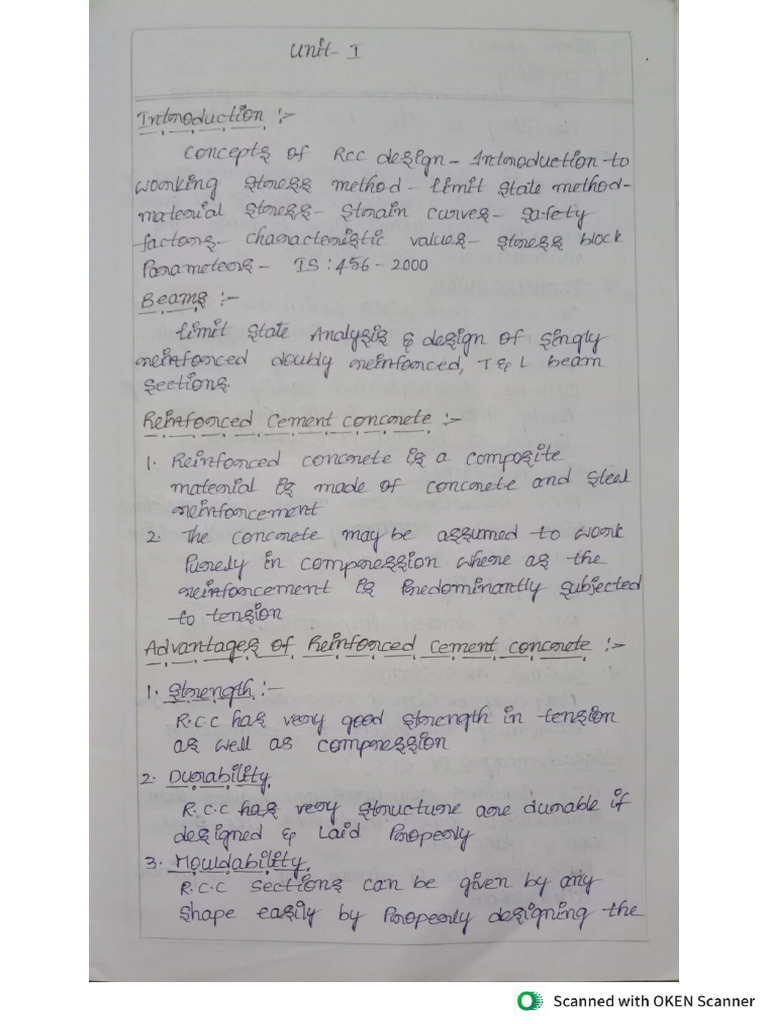 Unit- I
Introduction :-
Concepts of Rcc design - Introduction to
working stress method - limit state method-
material stress - Strain curves - Safety
factors - characteristic values - stress block
Parameters - IS : 456 - 2000
Beams :-
limit state Analysis & design of singly
reinforced doubly reinforced, T & L beam
sections.
Reinforced Cement concrete :-
1. Reinforced concrete is a composite
material is made of concrete and steel
reinforcement
2. The concrete may be assumed to work
Purely in compression where as the
reinforcement is Predominantly subjected
to tension
Advantages of Reinforced Cement concrete :-
1. Strength :-
R.C.C has very good strength in tension
as well as compression
2. Durability.
R.C.C has very structure are durable if
designed & Laid Properly
3. Mouldability.
R.C.C sections can be given by any
shape easily by Properly designing the
Scanned with OKEN Scanner